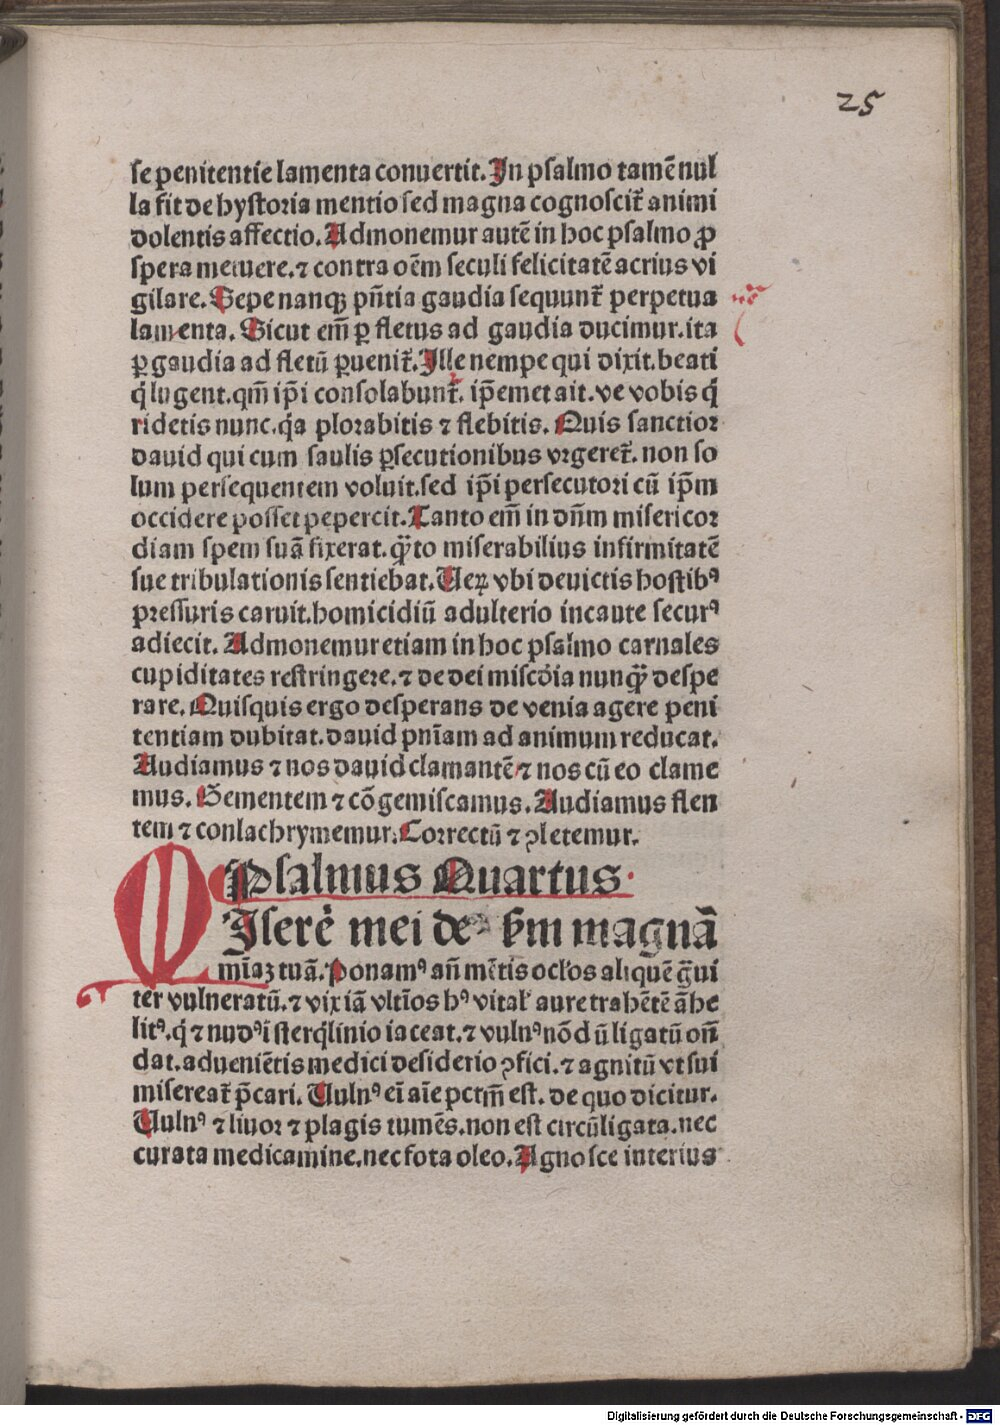 25
se penitentie lamenta conuertit. In psalmo tamē nul
la fit de hystoria mentio sed magna cognoscit̄ animi
dolentis affectio. Admonemur autē in hoc psalmo ꝓ
spera metuere. ⁊ contra oēm seculi felicitatē acrius vi
gilare. Sepe nanqꝫ pn̄tia gaudia sequunt̄ perpetua
lamenta. Sicut em̄ ꝑ fletus ad gaudia ducimur. ita
ꝑ gaudia ad fletū ꝑuenit̄. Ille nempe qui dixit. beati
q̇ lugent. qm̄ ip̄i consolabunt̄. ip̄emet ait. ve vobis q̇
ridetis nunc. q̇a plorabitis ⁊ flebitis. Quis sanctior
dauid qui cum saulis ꝑsecutionibus vrgeret̄. non so
lum persequentem voluit. sed ip̄i persecutori cū ip̄m
occidere posset pepercit. Tanto em̄ in dn̄m misericor
diam spem suā fixerat. q̄ꝫto miserabilius infirmitatē
sue tribulationis sentiebat. Ueꝝ vbi deuictis hostibꝰ
pressuris caruit. homicidiū adulterio incaute securꝰ
adiecit. Admonemur etiam in hoc psalmo carnales
cupiditates restringere. ⁊ de dei mīscdia nunq̄ꝫ despe
rare. Quisquis ergo desperans de venia agere peni
tentiam dubitat. dauid pn̄iam ad animum reducat.
Audiamus ⁊ nos dauid clamantē ⁊ nos cū eo clame
mus. Gementem ⁊ cōgemiscamus. Audiamus flen
tem ⁊ conlachrymemur. Correctū ⁊ ꝯletemur.
Psalmus Quartus
MIserē mei deꝰ ẜm magnā
mīaꝫ tuā. Ponamꝰ an̄ mētis oclos aliquē g̈ui
ter vulneratū. ⁊ vix iā vltīos hꝰ vital' aure trahētē āhe
litꝰ. q̇ ⁊ nudꝰ ī sterq̇linio iaceat. ⁊ vulnꝰ nōdū ligatū on̄
dat. aduenīetis medici desiderio ꝯfici. ⁊ agnitū vt sui
misereat̄ p̄cari. Uulnꝰ eī aīe pctm̄ est. de quo dicitur.
Uulnꝰ ⁊ liuor ⁊ plagis tumēs. non est circūligata. nec
curata medicamine. nec fota oleo. Agnosce interius
Digitalisierung gefördert durch die Deutsche Forschungsgemeinschaft - DFG